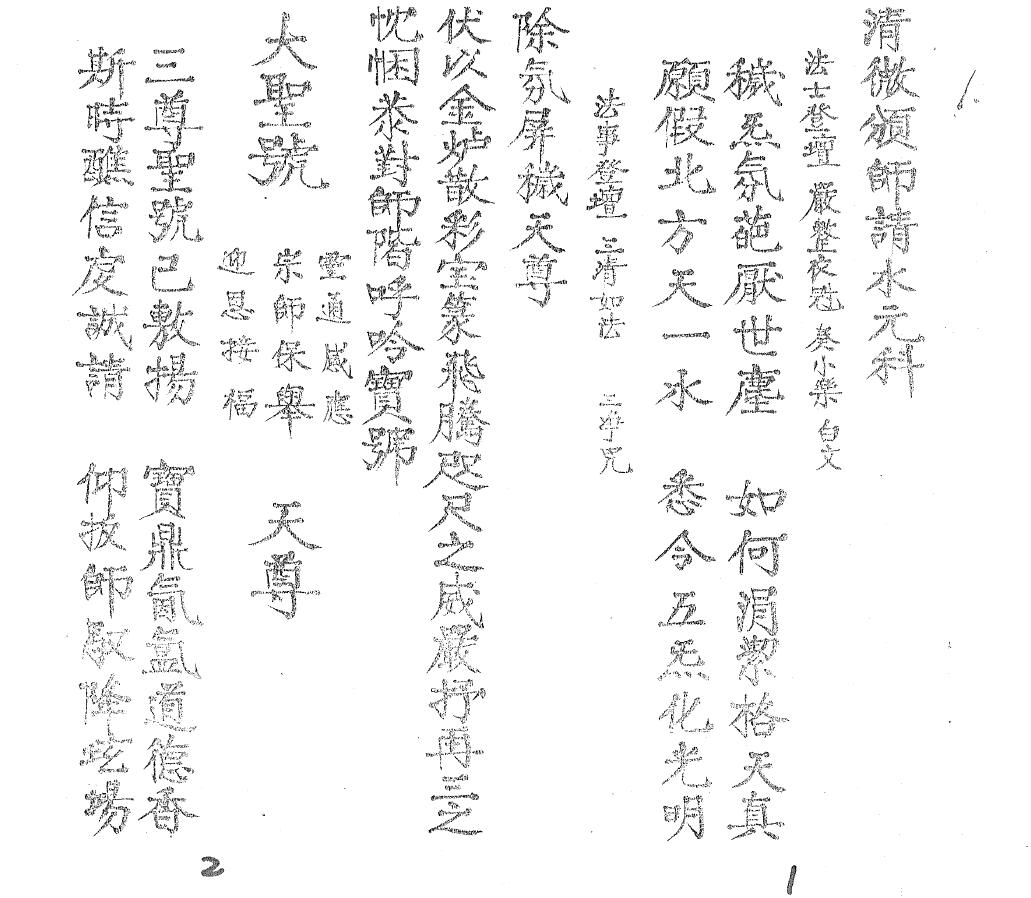 1.
清微頒師請水元科
法士登壇 嚴整衣冠 癸小樂 白文
穢炁氛葩厭世塵 如何涓潔格天真
願假北方天一水 悉令五炁化光明
法事登壇 三清如法 三净咒
除氛屏穢天尊
1
伏以金炉散彩宝篆飛騰咫尺之威嚴抒再三之
忱悃恭對師階呼吟寶號
大聖號
靈通感應
宗師保舉
迎恩接福
天尊
三尊聖號已敷揚 寶鼎氤氳道德香
斯時醮信虔誠請 仰扳師馭降玆場
2